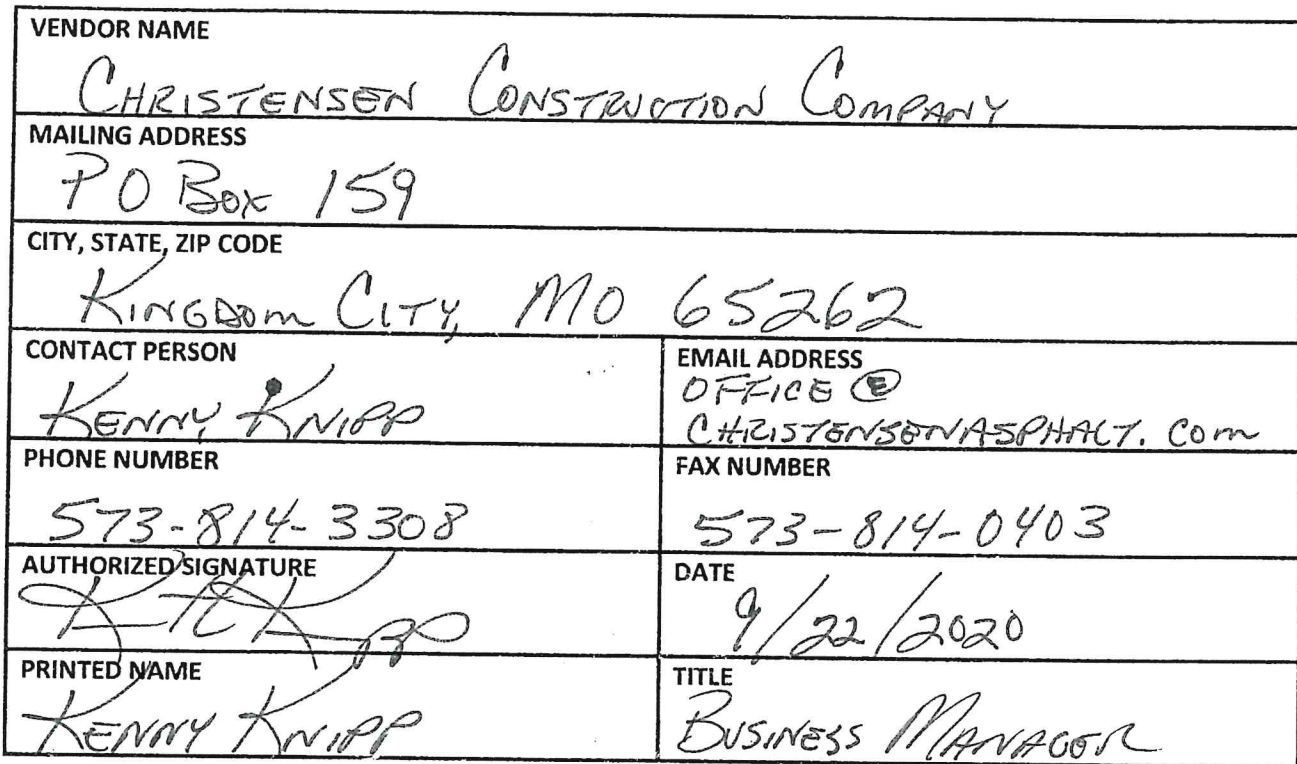 VENDOR NAME
CHRISTENSEN CONSTRUCTION COMPANY
MAILING ADDRESS
PO Box 159
CITY, STATE, ZIP CODE
KINGDOM CITY, MO 65262
CONTACT PERSON
KENNY KNIPP
EMAIL ADDRESS
OFFICE @
CHRISTENSENASPHALT.COM
PHONE NUMBER
573-814-3308
FAX NUMBER
573-814-0403
AUTHORIZED SIGNATURE
DATE
9/22/2020
PRINTED NAME
KENNY KNIPP
TITLE
BUSINESS MANAGER